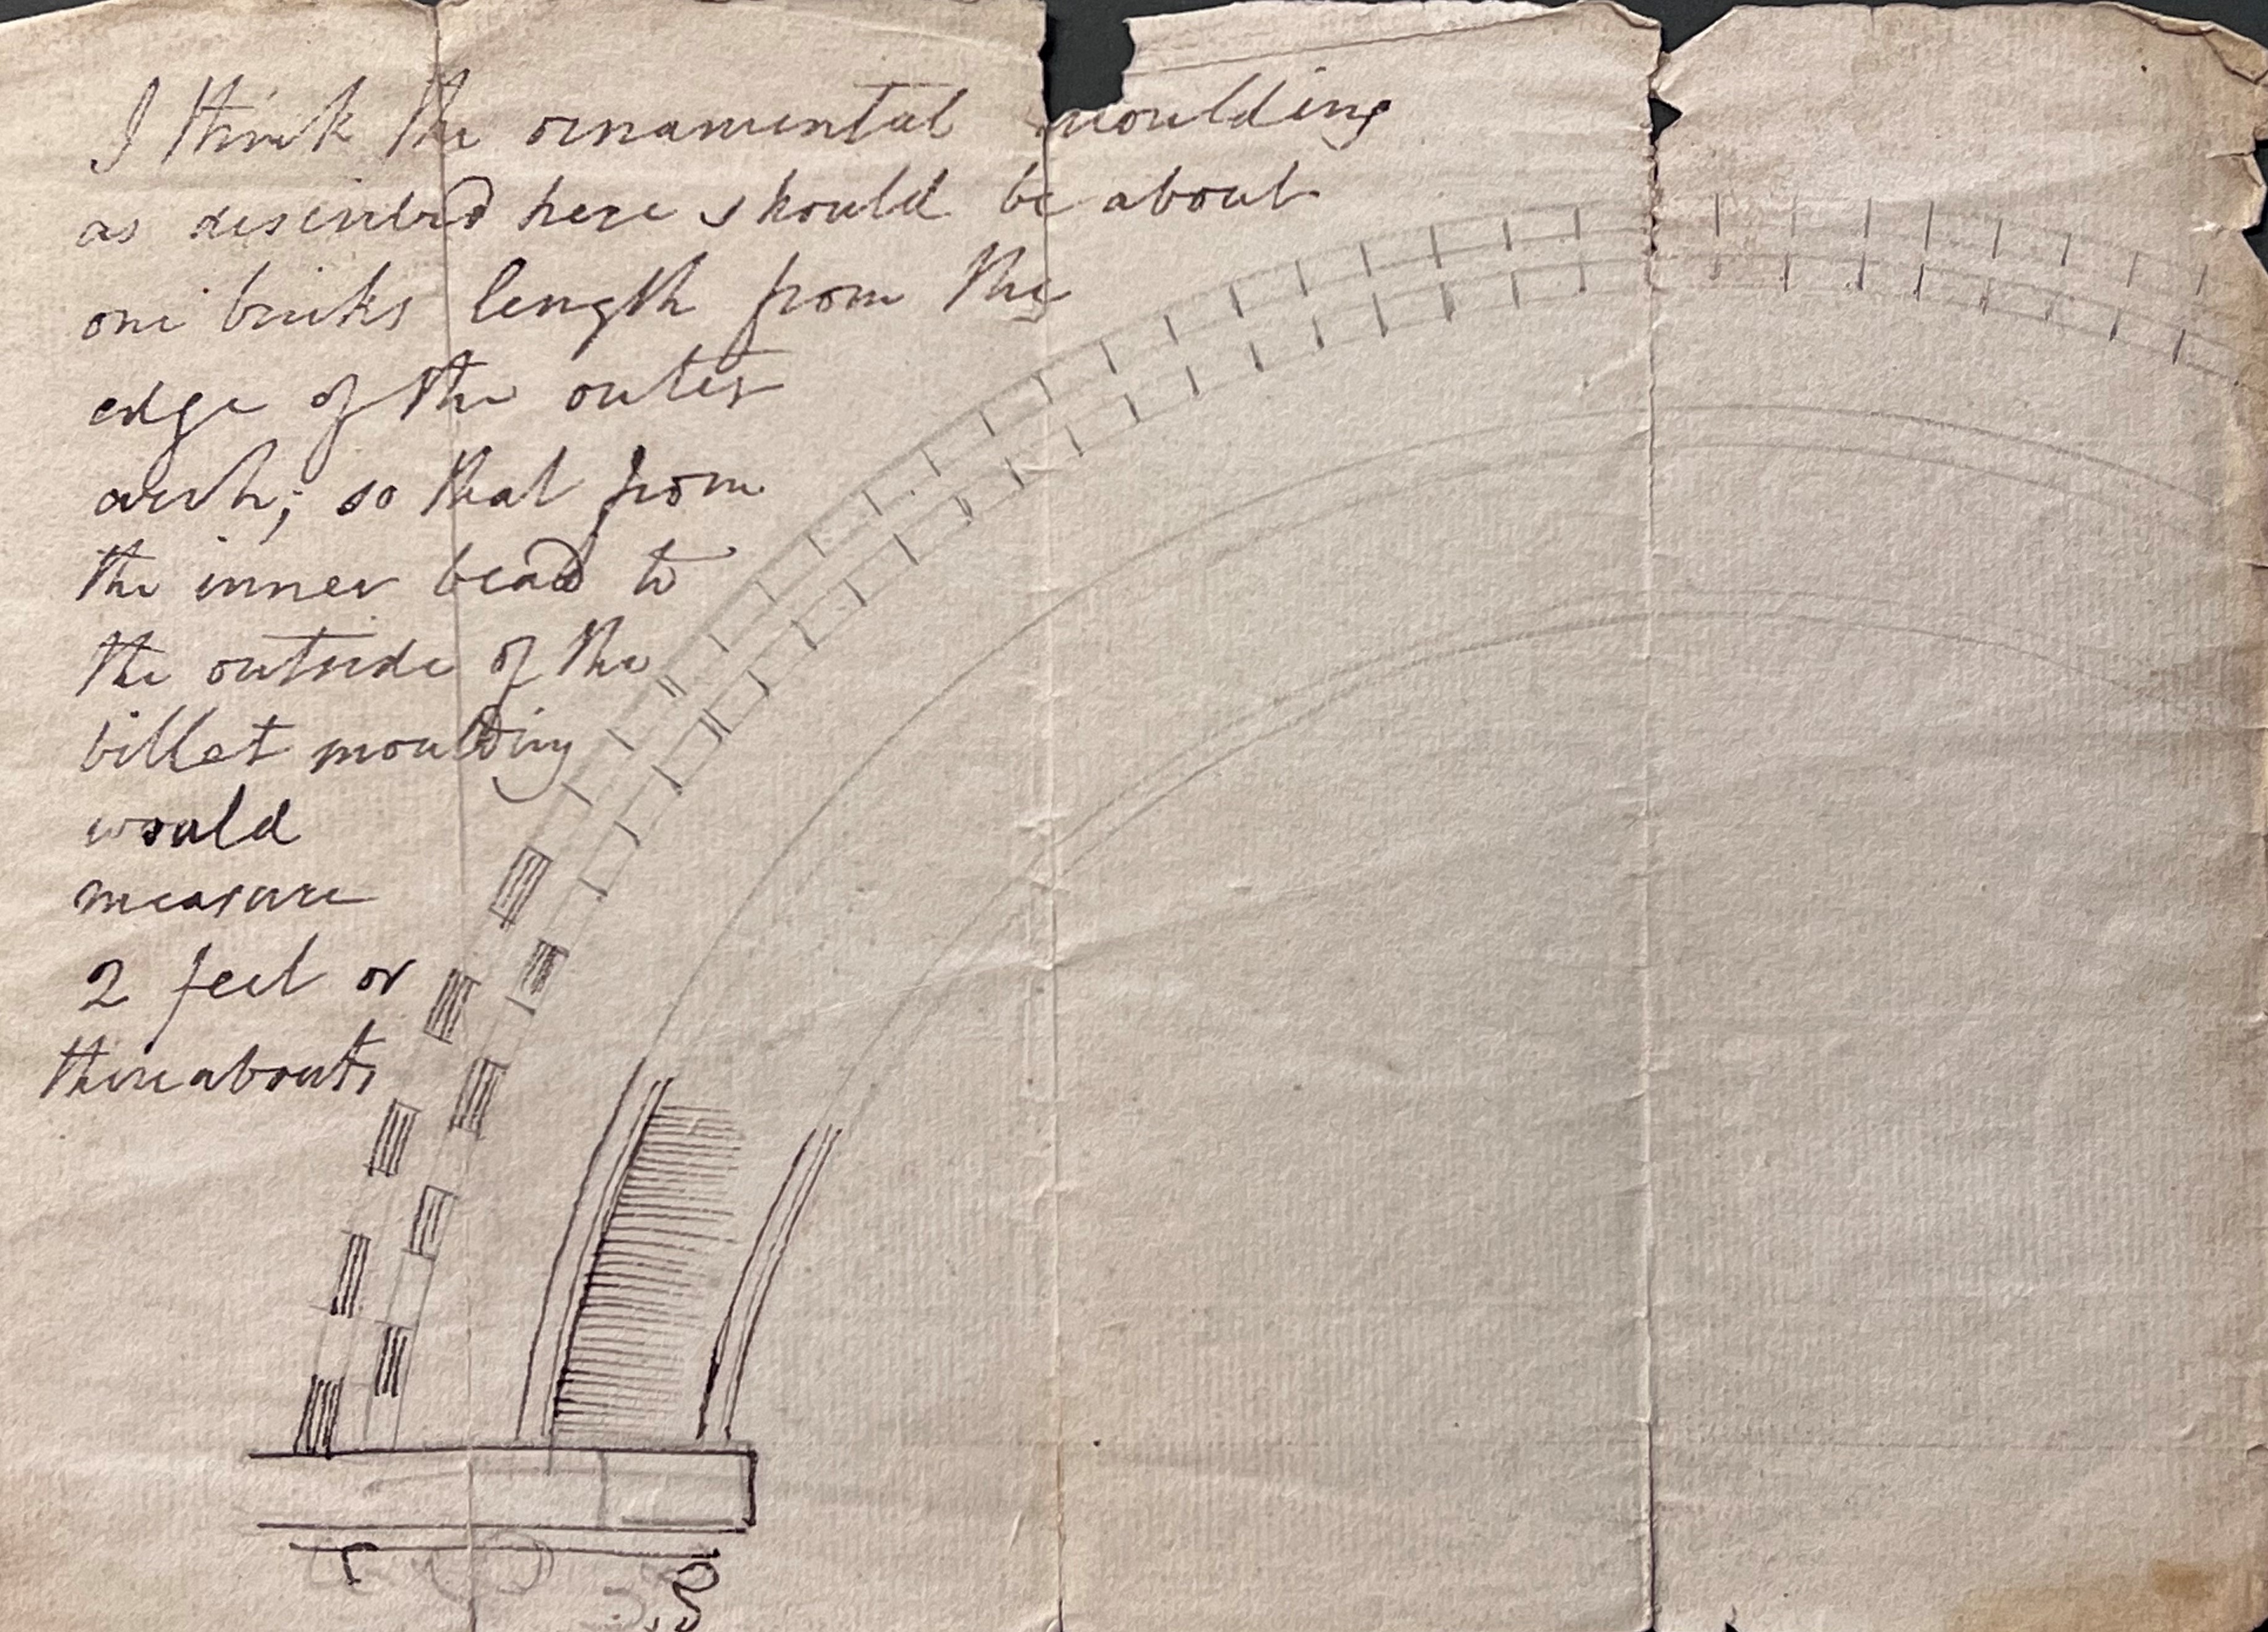 I think the ornamental moulding
as described here should be about
one bricks length from the
edge of the outer
arch; so that from
the inner bead to
the outside of the
billet moulding
would
measure
2 feet or
thereabouts